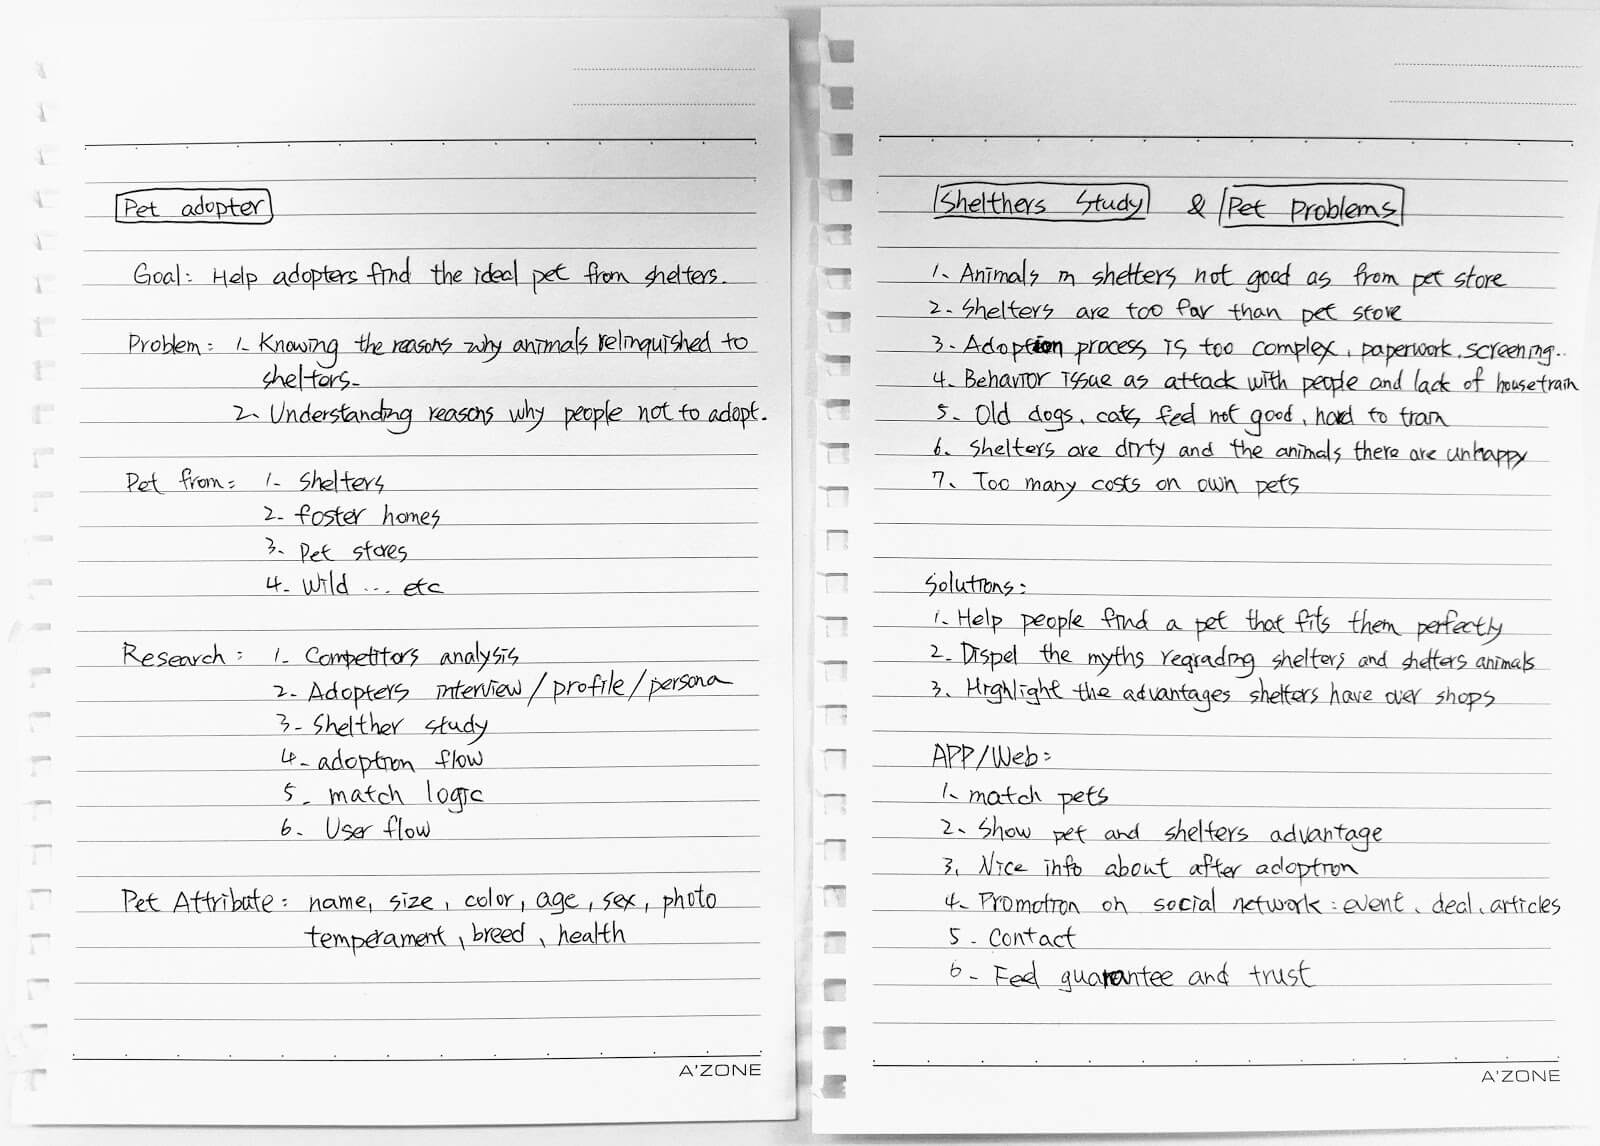 Pet adopter
Goal: Help adopters find the ideal pet from shelters.
Problem: 1. Knowing the reasons why animals relinquished to
shelters.
2. Understanding reasons why people not to adopt.
Pet from: 1. Shelters
2. foster homes
3. Pet stores
4. Wild ... etc
Research: 1. Competitors analysis
2. Adopters interview/profile/persona
3. Shelther study
4. adoption flow
5. match logic
6. User flow
Pet Attribute: name, size, color, age, sex, photo
temperament, breed, health
A'ZONE
Shelthers Study & Pet Problems
1. Animals in shelters not good as from pet store
2. Shelters are too far than pet store
3. Adoption process is too complex, paperwork, screening..
4. Behavior issue as attack with people and lack of housetrain
5. Old dogs, cats, feel not good, hard to train
6. Shelters are dirty and the animals there are unhappy
7. Too many costs on own pets
Solutions:
1. Help people find a pet that fits them perfectly
2. Dispel the myths regrading shelters and shelters animals
3. Highlight the advantages shelters have over shops
APP/Web:
1. match pets
2. Show pet and shelters advantage
3. Nice info about after adoption
4. Promotion on social network: event, deal, articles
5. Contact
6. Feel guarantee and trust
A'ZONE